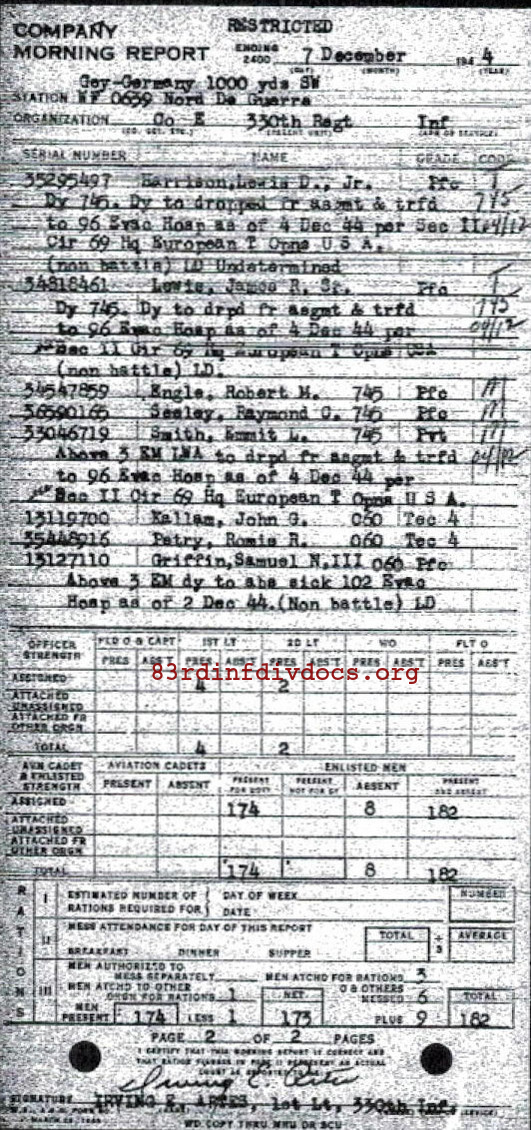 RESTRICTED
COMPANY
MORNING REPORT ENDING 2400 7 December 194 4
(DAY) (MONTH) (YEAR)
Gey-Germany 1000 yds SW
STATION WF 0639 Nord De Guerre
ORGANIZATION Co E 330th Regt Inf
SERIAL NUMBER NAME GRADE CODE
35295497 Harrison, Lewis D., Jr. Pfc
Dy 745. Dy to dropped fr asgmt & trfd 745
to 96 Evac Hosp as of 4 Dec 44 per Sec II
Cir 69 Hq European T Opns U S A.
(non battle) LD Undetermined
34818461 Lewis, James R, Sr. Pfc
Dy 745. Dy to drpd fr asgmt & trfd 745
to 96 Evac Hosp as of 4 Dec 44 per
Sec II Cir 69 Hq European T Opns USA
(non battle) LD.
34547859 Engle, Robert M. 745 Pfc
36590165 Seeley, Raymond C. 745 Pfc
33046719 Smith, Emmit L. 745 Pvt
Above 3 EM LWA to drpd fr asgmt & trfd
to 96 Evac Hosp as of 4 Dec 44 per
Sec II Cir 69 Hq European T Opns U S A.
13119700 Kallam, John G. 060 Tec 4
35448916 Petry, Romie R. 060 Tec 4
13127110 Griffin, Samuel N, III 060 Pfc
Above 3 EM dy to abs sick 102 Evac
Hosp as of 2 Dec 44. (Non battle) LD
OFFICER STRENGTH FLD O & CAPT 1ST LT 2D LT WO FLT O
PRES ABS'T PRES ABS'T PRES ABS'T PRES ABS'T PRES ABS'T
83rdinfdivdocs.org
ASSIGNED 4 2
ATTACHED UNASSIGNED
ATTACHED FR OTHER ORGN
TOTAL 4 2
AVN CADET & ENLISTED STRENGTH AVIATION CADETS ENLISTED MEN
PRESENT ABSENT PRESENT FOR DUTY PRESENT NOT FOR DY ABSENT PRESENT AND ABSENT
ASSIGNED 174 8 182
ATTACHED UNASSIGNED
ATTACHED FR OTHER ORGN
TOTAL 174 8 182
RATIONS
I ESTIMATED NUMBER OF RATIONS REQUIRED FOR DAY OF WEEK DATE NUMBER
II MESS ATTENDANCE FOR DAY OF THIS REPORT TOTAL ÷ 3 AVERAGE
BREAKFAST DINNER SUPPER
III MEN AUTHORIZED TO MESS SEPARATELY MEN ATCHD FOR RATIONS 3
MEN ATCHD TO OTHER ORGN FOR RATIONS 1 NET O & OTHERS MESSED 6 TOTAL
MEN PRESENT 174 LESS 1 173 PLUS 9 182
PAGE 2 OF 2 PAGES
I CERTIFY THAT THIS MORNING REPORT IS CORRECT AND
SIGNATURE IRVING E. ARTES, 1st Lt, 330th Inf.
WD COPY THRU MRU OR SCU